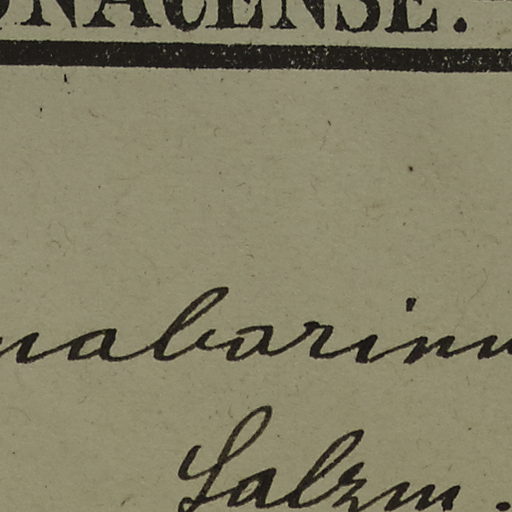 ONACENSE.
nabarinu
Salzm.